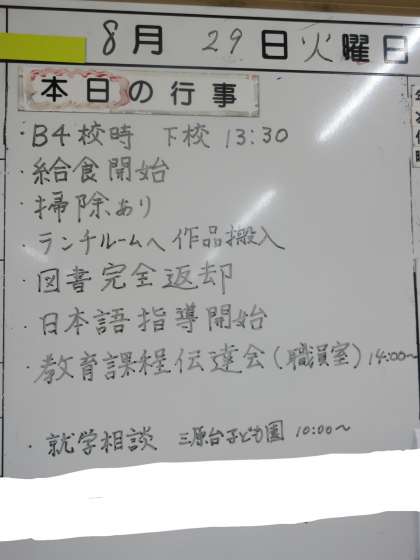 8月 29日 火曜日
本日の行事
・B4校時 下校 13:30
・給食開始
・掃除あり
・ランチルームへ作品搬入
・図書完全返却
・日本語指導開始
・教育課程伝達会(職員室)14:00~
・就学相談 三原台子ども園 10:00~